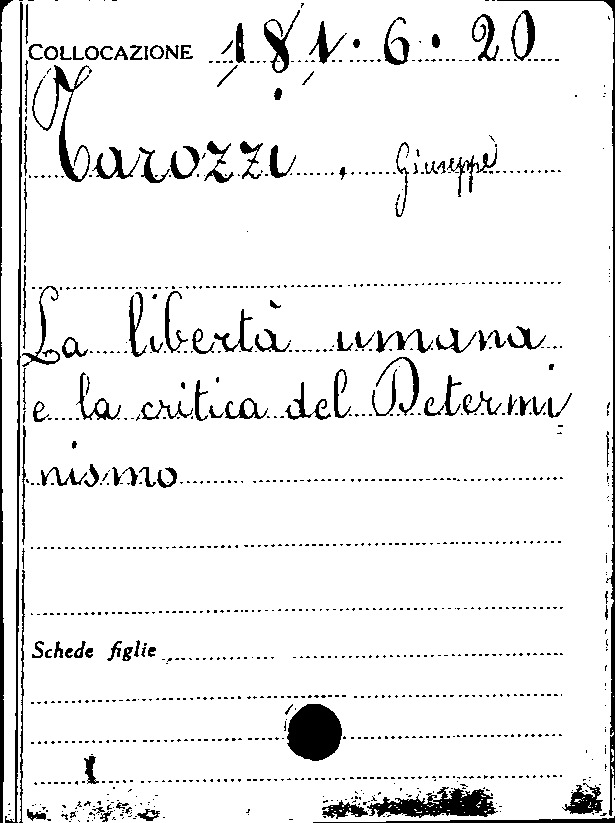 COLLOCAZIONE 181.6.20
Tarozzi, Giuseppe
La libertà umana
e la critica del Determi
nismo
Schede figlie